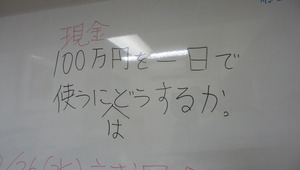 現金
100万円を一日で
使うにどうするか。
は